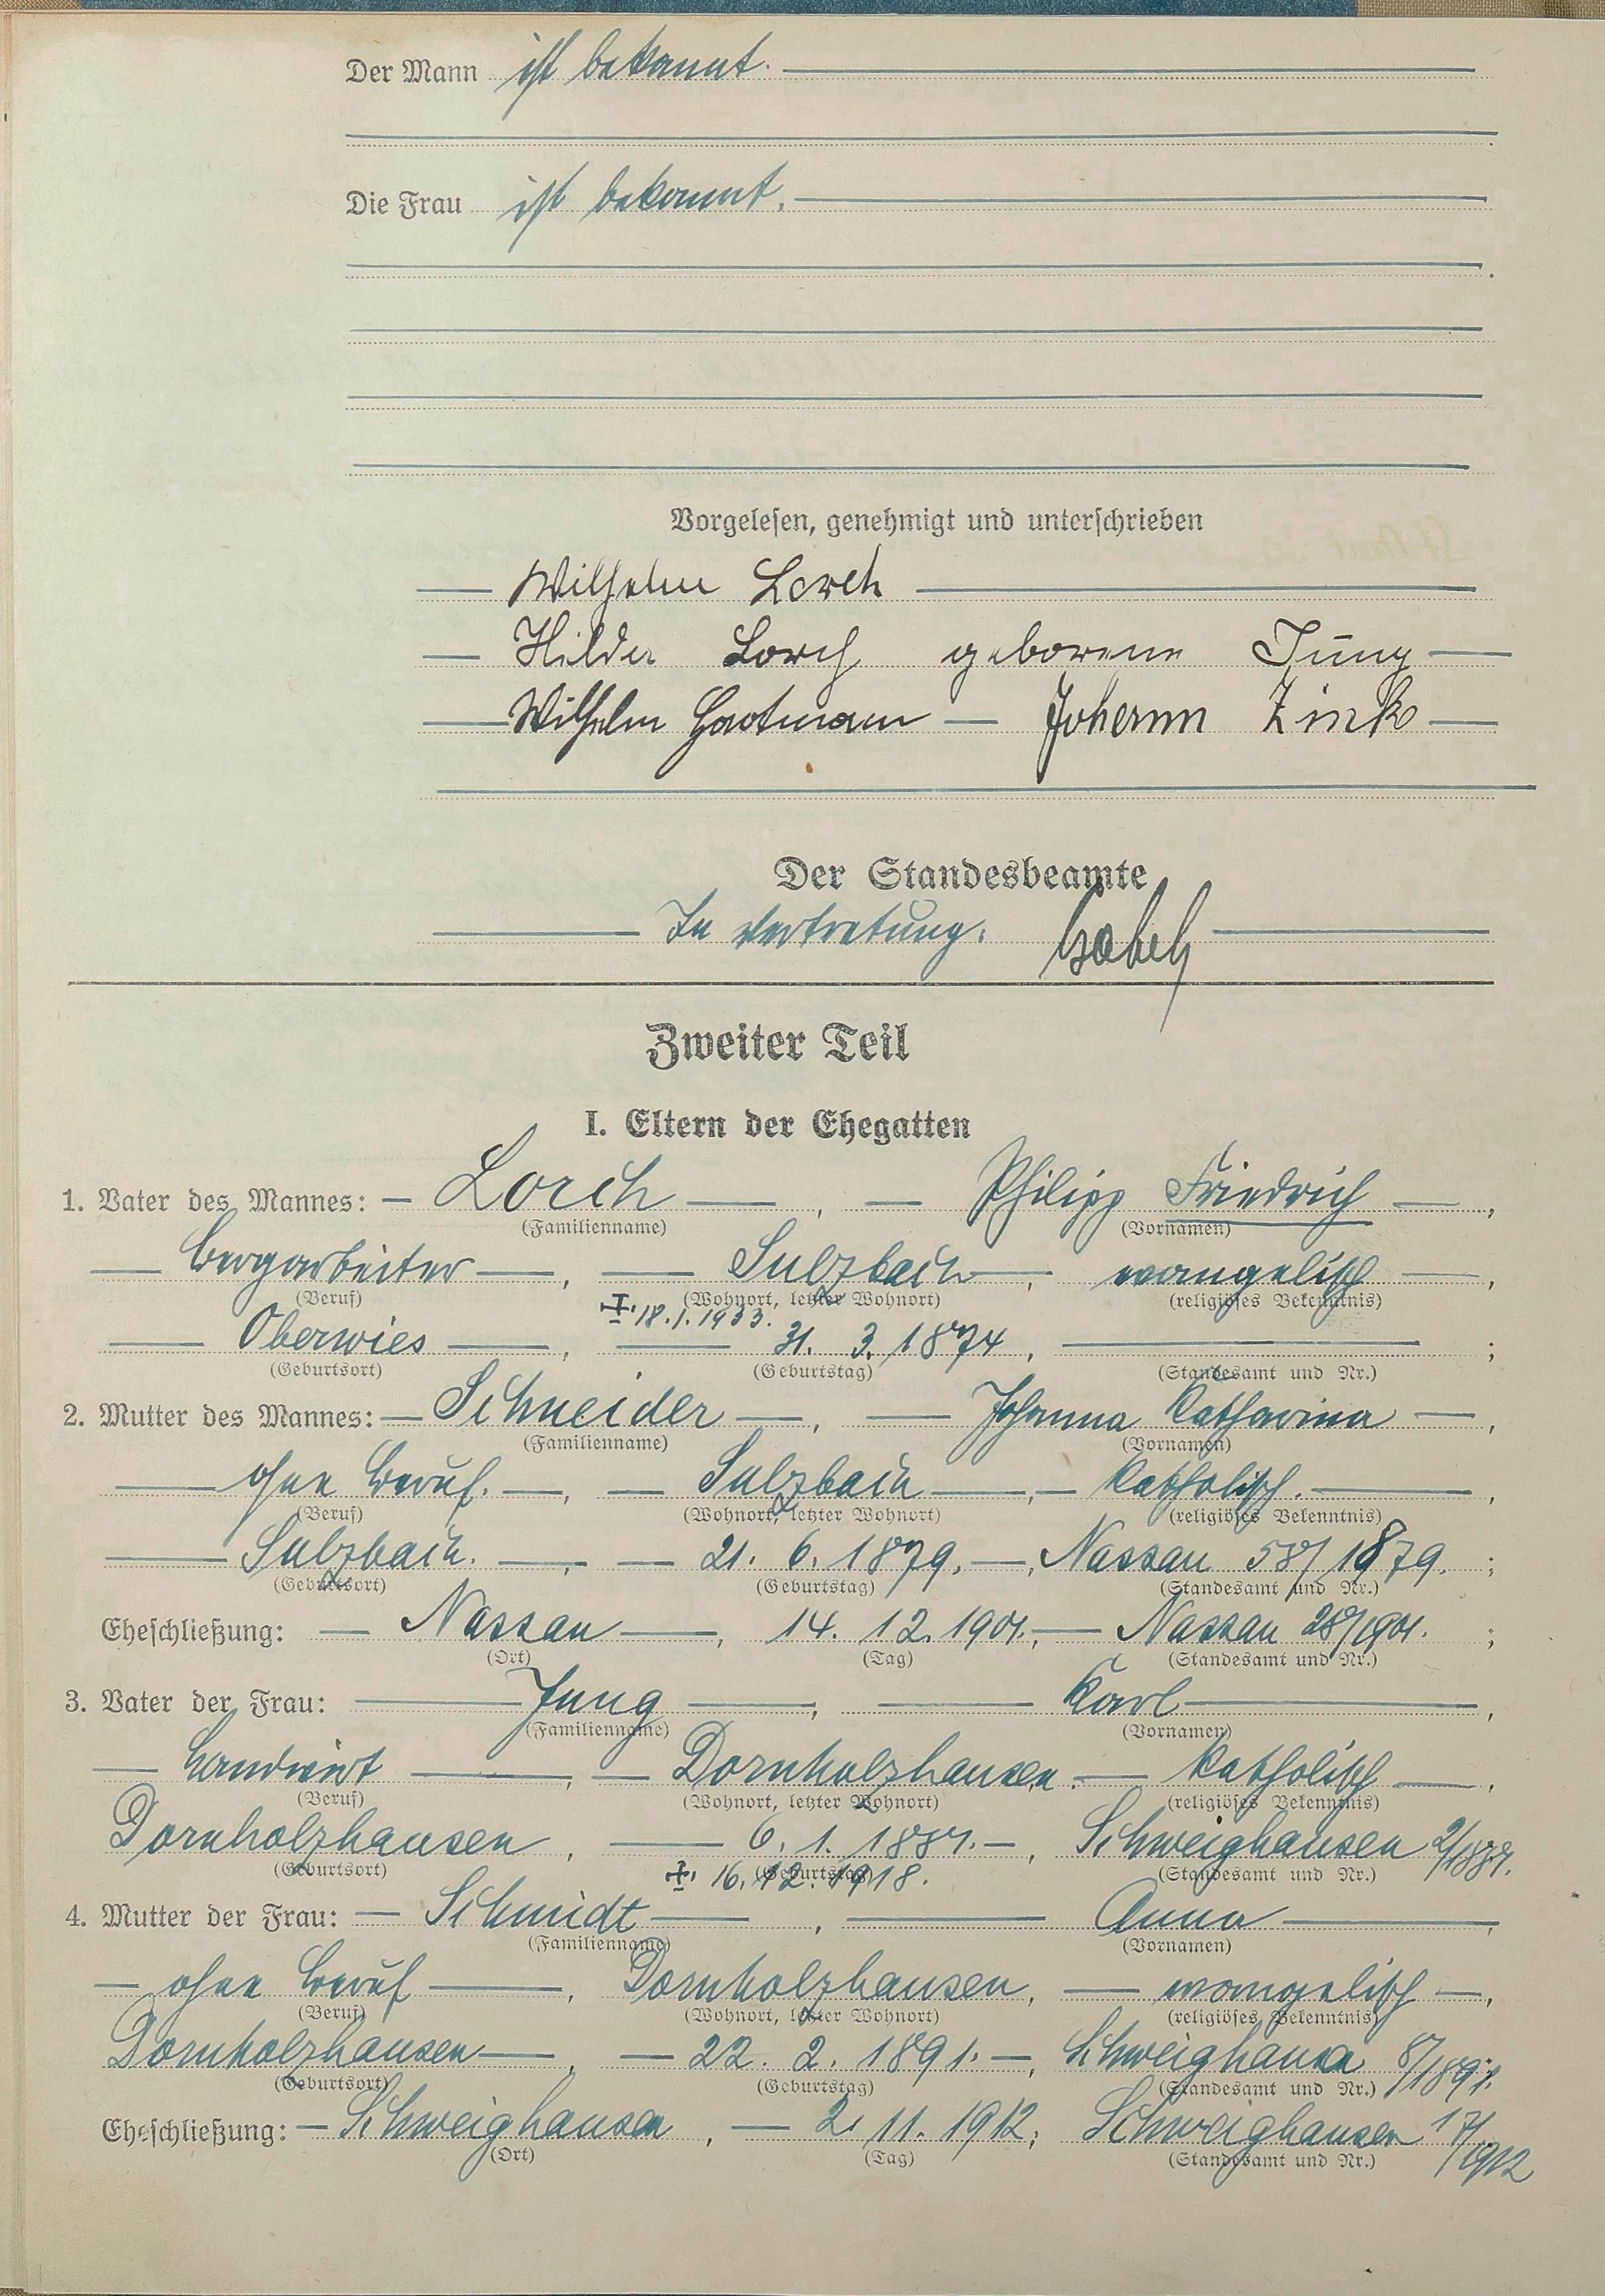 Der Mann ist bekannt.
Die Frau ist bekannt.
Vorgelesen, genehmigt und unterschrieben
Wilhelm Lorch
Hilda Lorch geborene Jung
Wilhelm Hartmann Johann Zink
Der Standesbeamte
In Vertretung:
Zweiter Teil
I. Eltern der Ehegatten
1. Vater des Mannes: Lorch, Philipp Friedrich,
(Familienname) (Vornamen)
Bergarbeiter, Sulzbach, evangelisch,
(Beruf) (Wohnort, letzter Wohnort) (religiöses Bekenntnis)
18.1.1933.
Oberwies, 31. 3. 1874, ;
(Geburtsort) (Geburtstag) (Standesamt und Nr.)
2. Mutter des Mannes: Schneider, Johanna Katharina,
(Familienname) (Vornamen)
ohne Beruf., Sulzbach, katholisch.,
(Beruf) (Wohnort, letzter Wohnort) (religiöses Bekenntnis)
Sulzbach., 21. 6. 1879., Nassau 58/1879. ;
(Geburtsort) (Geburtstag) (Standesamt und Nr.)
Eheschließung: Nassau, 14. 12. 1901., Nassau 28/1901. ;
(Ort) (Tag) (Standesamt und Nr.)
3. Vater der Frau: Jung, Karl,
(Familienname) (Vornamen)
Landwirt, Dornholzhausen. katholisch,
(Beruf) (Wohnort, letzter Wohnort) (religiöses Bekenntnis)
Dornholzhausen, 6. 1. Schweighausen
(Geburtsort) (Geburtstag) (Standesamt und Nr.)
16. 12. 1918.
4. Mutter der Frau: Schmidt, Anna,
(Familienname) (Vornamen)
ohne Beruf, Dornholzhausen, evangelisch,
(Beruf) (Wohnort, letzter Wohnort) (religiöses Bekenntnis)
Dornholzhausen, 22. 2. 1891., Schweighausen 8/1891.
(Geburtsort) (Geburtstag) (Standesamt und Nr.)
Eheschließung: Schweighausen, 2. 11. 1912; Schweighausen 17/1912
(Ort) (Tag) (Standesamt und Nr.)